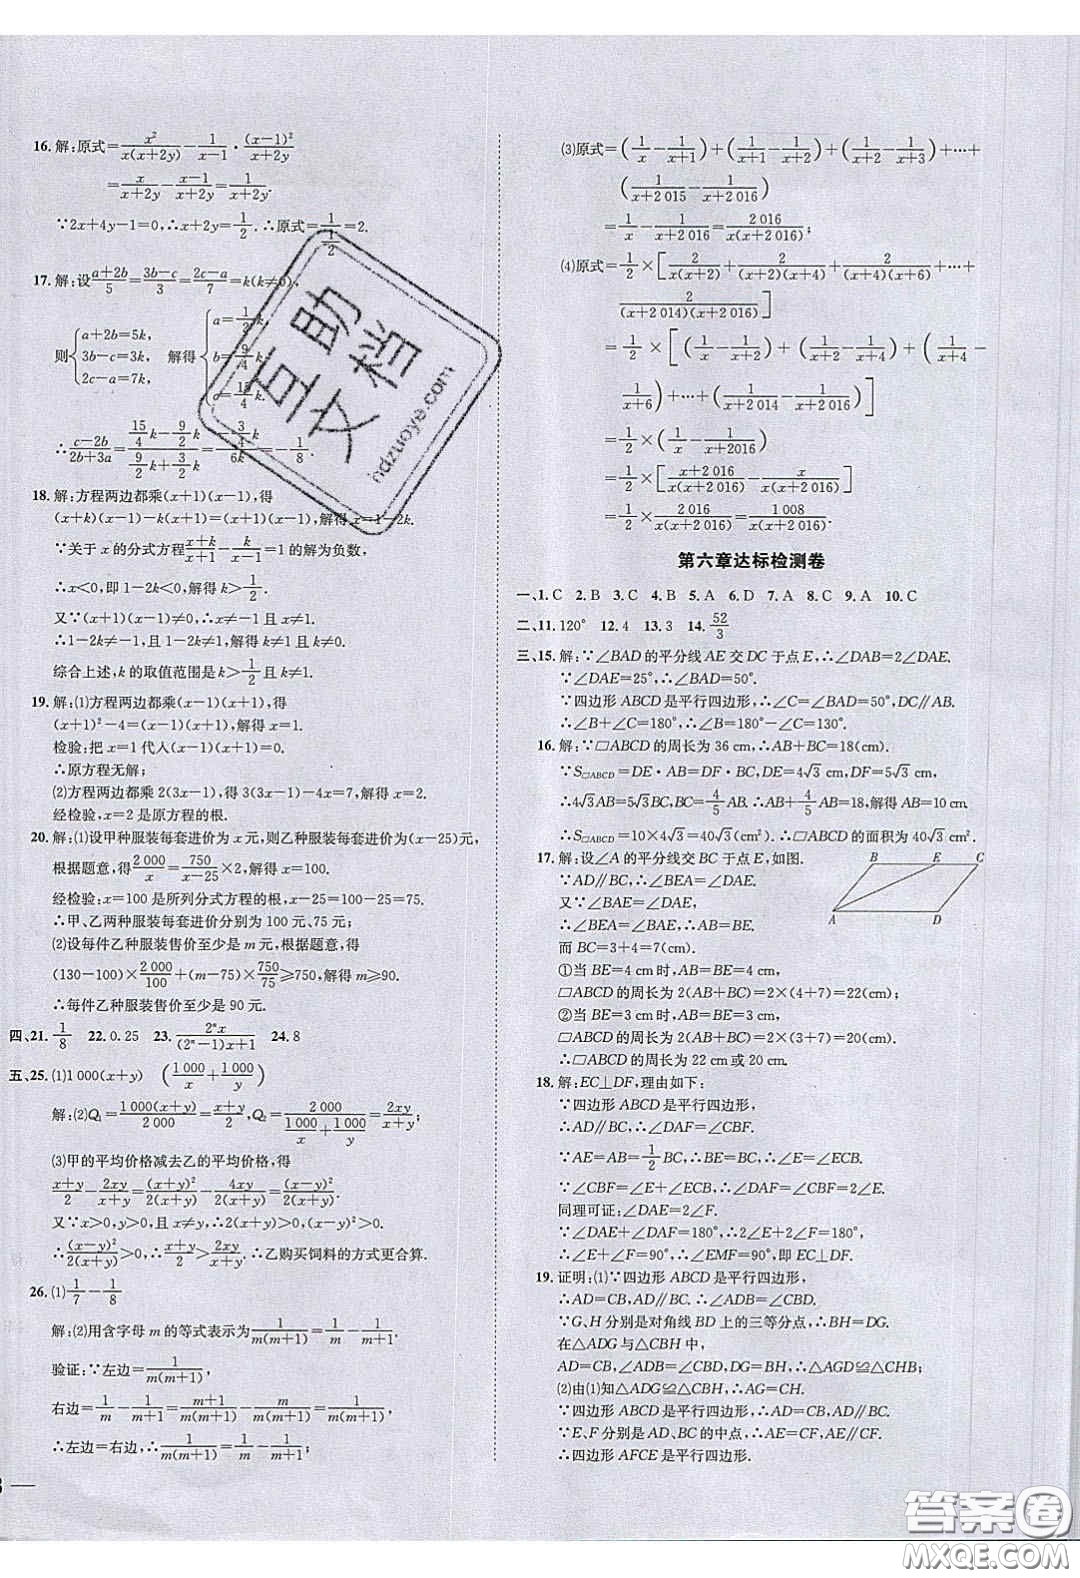 16. 解:原式=\frac{x^2}{x(x+2y)}-\frac{1}{x-1}·\frac{(x-1)^2}{x+2y}
=\frac{x}{x+2y}-\frac{x-1}{x+2y}=\frac{1}{x+2y}.
∵2x+4y-1=0,∴x+2y=\frac{1}{2}.∴原式=\frac{1}{\frac{1}{2}}=2.
17. 解:设\frac{a+2b}{5}=\frac{3b-c}{3}=\frac{2c-a}{7}=k(k≠0),
则{a+2b=5k, 3b-c=3k, 2c-a=7k, 解得{a=\frac{1}{2}k, b=\frac{9}{4}k, c=\frac{15}{4}k.
∴\frac{c-2b}{2b+3a}=\frac{\frac{15}{4}k-\frac{9}{2}k}{\frac{9}{2}k+\frac{3}{2}k}=\frac{-\frac{3}{4}k}{6k}=-\frac{1}{8}.
18. 解:方程两边都乘(x+1)(x-1),得
(x+k)(x-1)-k(x+1)=(x+1)(x-1),解得x=1-2k.
∵关于x的分式方程\frac{x+k}{x+1}-\frac{k}{x-1}=1的解为负数,
∴x<0,即1-2k<0,解得k>\frac{1}{2}.
又∵(x+1)(x-1)≠0,∴x≠-1且x≠1.
∴1-2k≠-1,且1-2k≠1,解得k≠1且k≠0.
综合上述,k的取值范围是k>\frac{1}{2}且k≠1.
19. 解:(1)方程两边都乘(x-1)(x+1),得
(x+1)^2-4=(x-1)(x+1),解得x=1.
检验:把x=1代人(x-1)(x+1)=0.
∴原方程无解;
(2)方程两边都乘2(3x-1),得3(3x-1)-4x=7,解得x=2.
经检验,x=2是原方程的根.
20. 解:(1)设甲种服装每套进价为x元,则乙种服装每套进价为(x-25)元,
根据题意,得\frac{2 000}{x}=\frac{750}{x-25}×2,解得x=100.
经检验:x=100是所列分式方程的根,x-25=100-25=75.
∴甲、乙两种服装进价分别为100元、75元;
(2)设每件乙种服装售价至少是m元,根据题意,得
(130-100)×\frac{2 000}{100}+(m-75)×\frac{750}{75}≥750,解得m≥90.
∴每件乙种服装售价至少是90元.
四、21. \frac{1}{8} 22. 0.25 23. \frac{2^n x}{(2^n-1)x+1} 24. 8
五、25. (1)1 000(x+y) (\frac{1 000}{x}+\frac{1 000}{y})
解:(2)Q₁=\frac{1 000(x+y)}{2 000}=\frac{x+y}{2},Q₂=\frac{2 000}{\frac{1 000}{x}+\frac{1 000}{y}}=\frac{2xy}{x+y};
(3)甲的平均价格减去乙的平均价格,得
\frac{x+y}{2}-\frac{2xy}{x+y}=\frac{(x+y)^2}{2(x+y)}-\frac{4xy}{2(x+y)}=\frac{(x-y)^2}{2(x+y)}.
又∵x>0,y>0,且x≠y,∴2(x+y)>0,(x-y)^2>0.
∴\frac{(x-y)^2}{2(x+y)}>0,∴\frac{x+y}{2}>\frac{2xy}{x+y},∴乙购买饲料的方式更合算.
26. (1)\frac{1}{7}-\frac{1}{8}
解:(2)用含字母m的等式表示为\frac{1}{m(m+1)}=\frac{1}{m}-\frac{1}{m+1}.
验证:∵左边=\frac{1}{m(m+1)},
右边=\frac{1}{m}-\frac{1}{m+1}=\frac{m+1}{m(m+1)}-\frac{m}{m(m+1)}=\frac{1}{m(m+1)},
∴左边=右边,∴\frac{1}{m(m+1)}=\frac{1}{m}-\frac{1}{m+1};
(3)原式=(\frac{1}{x}-\frac{1}{x+1})+(\frac{1}{x+1}-\frac{1}{x+2})+(\frac{1}{x+2}-\frac{1}{x+3})+…+
(\frac{1}{x+2 015}-\frac{1}{x+2 016})
=\frac{1}{x}-\frac{1}{x+2 016}=\frac{2 016}{x(x+2 016)};
(4)原式=\frac{1}{2}×[\frac{2}{x(x+2)}+\frac{2}{(x+2)(x+4)}+\frac{2}{(x+4)(x+6)}+…+
\frac{2}{(x+2 014)(x+2 016)}]
=\frac{1}{2}×[(\frac{1}{x}-\frac{1}{x+2})+(\frac{1}{x+2}-\frac{1}{x+4})+(\frac{1}{x+4}-
\frac{1}{x+6})+…+(\frac{1}{x+2 014}-\frac{1}{x+2 016})]
=\frac{1}{2}×(\frac{1}{x}-\frac{1}{x+2 016})
=\frac{1}{2}×[\frac{x+2 016}{x(x+2 016)}-\frac{x}{x(x+2 016)}]
=\frac{1}{2}×\frac{2 016}{x(x+2 016)}=\frac{1 008}{x(x+2 016)}.
第六章达标检测卷
一、1. C 2. B 3. C 4. B 5. A 6. D 7. A 8. C 9. A 10. C
二、11. 120° 12. 4 13. 3 14. \frac{52}{3}
三、15. 解:∵∠BAD的平分线AE交DC于点E,∴∠DAB=2∠DAE.
∵∠DAE=25°,∴∠BAD=50°.
∵四边形ABCD是平行四边形,∴∠C=∠BAD=50°,DC∥AB.
∴∠B+∠C=180°,∴∠B=180°-∠C=130°.
16. 解:∵□ABCD的周长为36 cm,∴AB+BC=18(cm).
∵S□ABCD=DE·AB=DF·BC,DE=4√3 cm,DF=5√3 cm,
∴4√3AB=5√3BC,∴BC=\frac{4}{5}AB.∴AB+\frac{4}{5}AB=18,解得AB=10 cm.
∴S□ABCD=10×4√3=40√3(cm²).∴□ABCD的面积为40√3 cm².
17. 解:设∠A的平分线交BC于点E,如图.
∵AD∥BC,∴∠BEA=∠DAE.
又∵∠BAE=∠DAE,
∴∠BEA=∠BAE,∴AB=BE.
而BC=3+4=7(cm).
①当BE=4 cm时,AB=BE=4 cm,
□ABCD的周长为2(AB+BC)=2×(4+7)=22(cm);
②当BE=3 cm时,AB=BE=3 cm,
□ABCD的周长为2(AB+BC)=2×(3+7)=20(cm).
∴□ABCD的周长为22 cm或20 cm.
B E C
A D
18. 解:EC⊥DF,理由如下:
∵四边形ABCD是平行四边形,
∴AD∥BC,∴∠DAF=∠CBF.
∵AE=AB=\frac{1}{2}BC,∴BE=BC,∴∠E=∠ECB.
∵∠CBF=∠E+∠ECB,∴∠DAF=∠CBF=2∠E.
同理可证:∠DAE=2∠F.
∵∠DAE+∠DAF=180°,∴2∠E+2∠F=180°,
∴∠E+∠F=90°,∴∠EMF=90°,即EC⊥DF.
19. 证明:(1)∵四边形ABCD是平行四边形,
∴AD=CB,AD∥BC.∴∠ADB=∠CBD.
∵G、H分别是对角线BD上的三等分点,∴BH=DG.
在△ADG与△CBH中,
AD=CB,∠ADB=∠CBD,DG=BH,∴△AGD≌△CHB;
(2)由(1)知△ADG≌△CBH,∴AG=CH.
∵四边形ABCD是平行四边形,∴AD∥BC.
∵E、F分别是AD、BC的中点,∴AE=CF,AE∥CF.
∴四边形AFCE是平行四边形.
互助文档
ndzuoye.com
答案圈
MXQE.COM